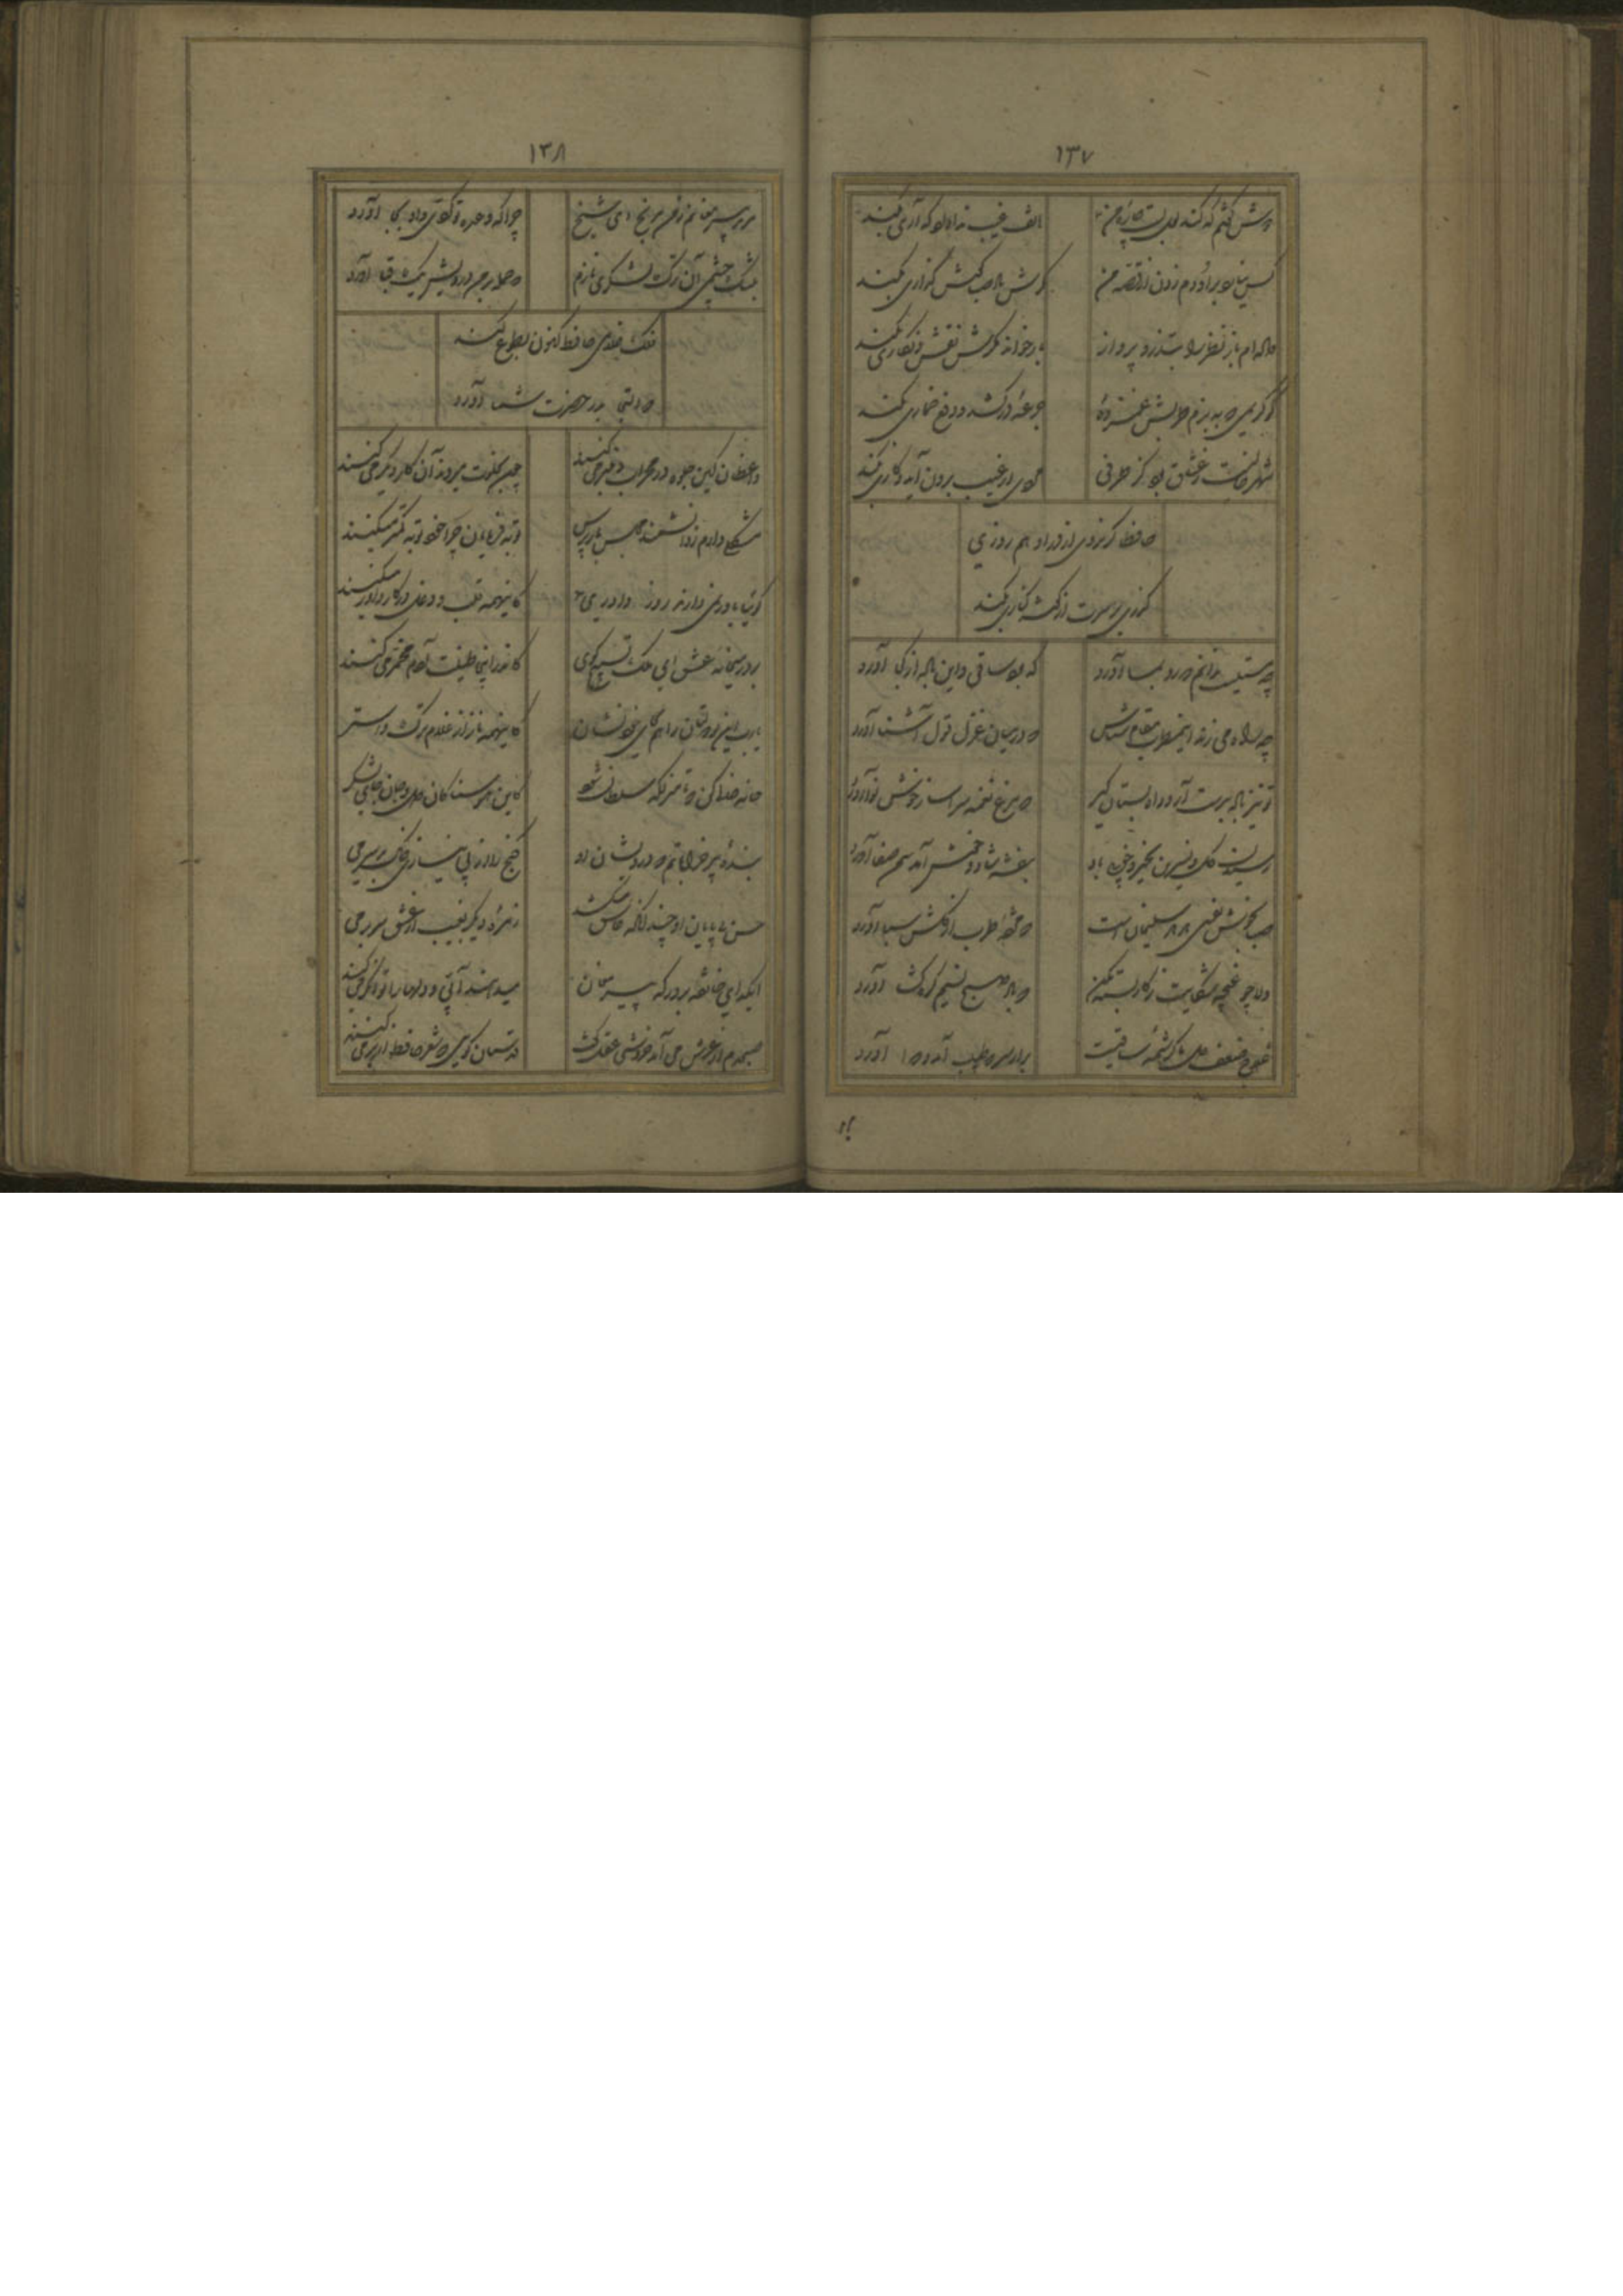 ۱۳۷
دوش گفتم که کند لعل لبت چاره من
هاتف غیب ندا داد که آری بکند
کس نیارد بر او دم زدن از قصه من
مگرش باد صبا گوش گذاری بکند
داده ام باز نظر را بتذرو پرواز
باز خواند مگرش نقش و شکاری بکند
کو کریمی که به بزم طربش غمزده
جرعه درکشد و دفع خماری بکند
شهر خالیست ز عشاق بود کز طرفی
مردی از غیب برون آید و کاری بکند
حافظا گر نروی از در او هم روزی
گذری بر سرت از گوشه کناری بکند
چه مستیست ندانم که رو بما آورد
که بود ساقی و این باده از کجا آورد
چه راه می زند این مطرب مقام شناس
که در میان غزل قول آشنا آورد
تو نیز باده بدست آر و راه بستان گیر
که مرغ نغمه سرا ساز خوش نوا آورد
رسیدن گل و نسرین بخیر و خوبی باد
بنفشه شاد و خوش آمد سمن صفا آورد
صبا بخوش خبری هدهد سلیمان است
که مژده طرب از گلشن سبا آورد
دلا چو غنچه شکایت ز کار بسته مکن
که باد صبح نسیم گره گشا آورد
علاج ضعف دل ما کرشمه ساقیست
برآر سر که طبیب آمد و دوا آورد
۱۳۸
مرید پیر مغانم ز من مرنج ای شیخ
چرا که وعده تو کردی و او بجا آورد
بتنگ چشمی آن ترک لشکری نازم
که حمله بر من درویش یک قبا آورد
فلک غلامی حافظ کنون بطوع کند
که التجا بدر حضرت شما آورد
واعظان کین جلوه در محراب و منبر می کنند
چون بخلوت میروند آن کار دیگر می کنند
مشکلی دارم ز دانشمند مجلس باز پرس
توبه فرمایان چرا خود توبه کمتر میکنند
گوئیا باور نمی دارند روز داوری
کاینهمه قلب و دغل در کار داور میکنند
بر در میخانه عشق ای ملک تسبیح گوی
کاندر اینجا طینت آدم مخمر می کنند
یارب این نو دولتان را هم بر خر خودشان نشان
کاینهمه ناز از غلام ترک و استر
خانه خالی کن دلا تا منزل سلطان شود
کاین هوسناکان دل و جان جای لشکر
بنده پیر خراباتم که درویشان او
گنج را از بی نیازی خاک بر سر می
حسن بی پایان او چندانکه عاشق میکشد
زمره دیگر بغیب از عشق سر بر می
ای گدای خانقه بر در که پیر مغان
میدهند آبی و دلها را توانگر می کنند
صبحدم از عرش می آمد خروشی عقل گفت
قدسیان گویی که شعر حافظ از بر می کنند